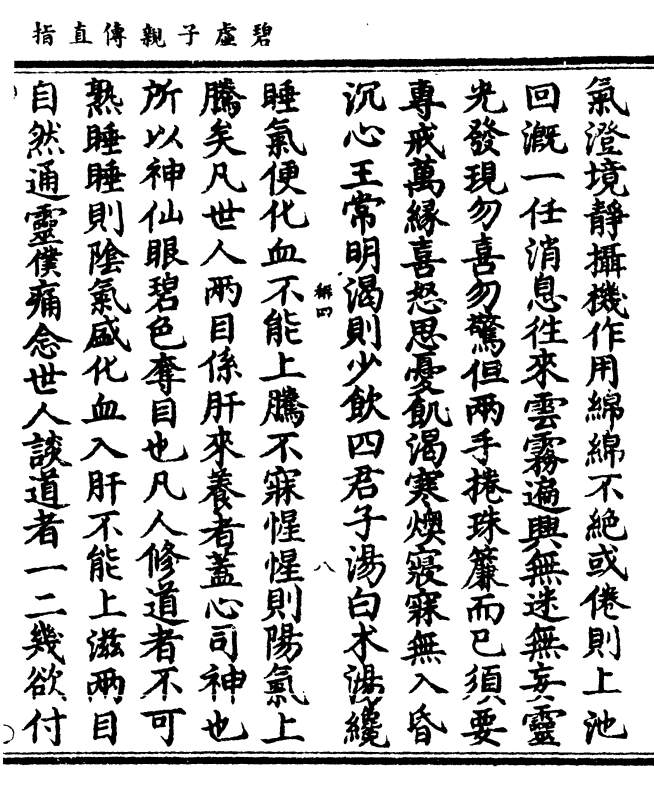 碧虛子親傳直指
氣澄境靜攝機作用綿綿不絕或倦則上池
回漑一任消息往來雲霧遍興無迷無妄靈
光發現勿喜勿驚但兩手捲珠簾而已須要
專戒萬緣喜怒思憂飢渴寒燠寢寐無入昏
沉心王常明渴則少飲四君子湯白朮湯纔
稱四
八
睡氣便化血不能上騰不寐惺惺則陽氣上
騰矣凡世人兩目係肝來養者蓋心司神也
所以神仙眼碧色奪目也凡人修道者不可
熟睡睡則陰氣盛化血入肝不能上滋兩目
自然通靈僕痛念世人談道者一二幾欲付